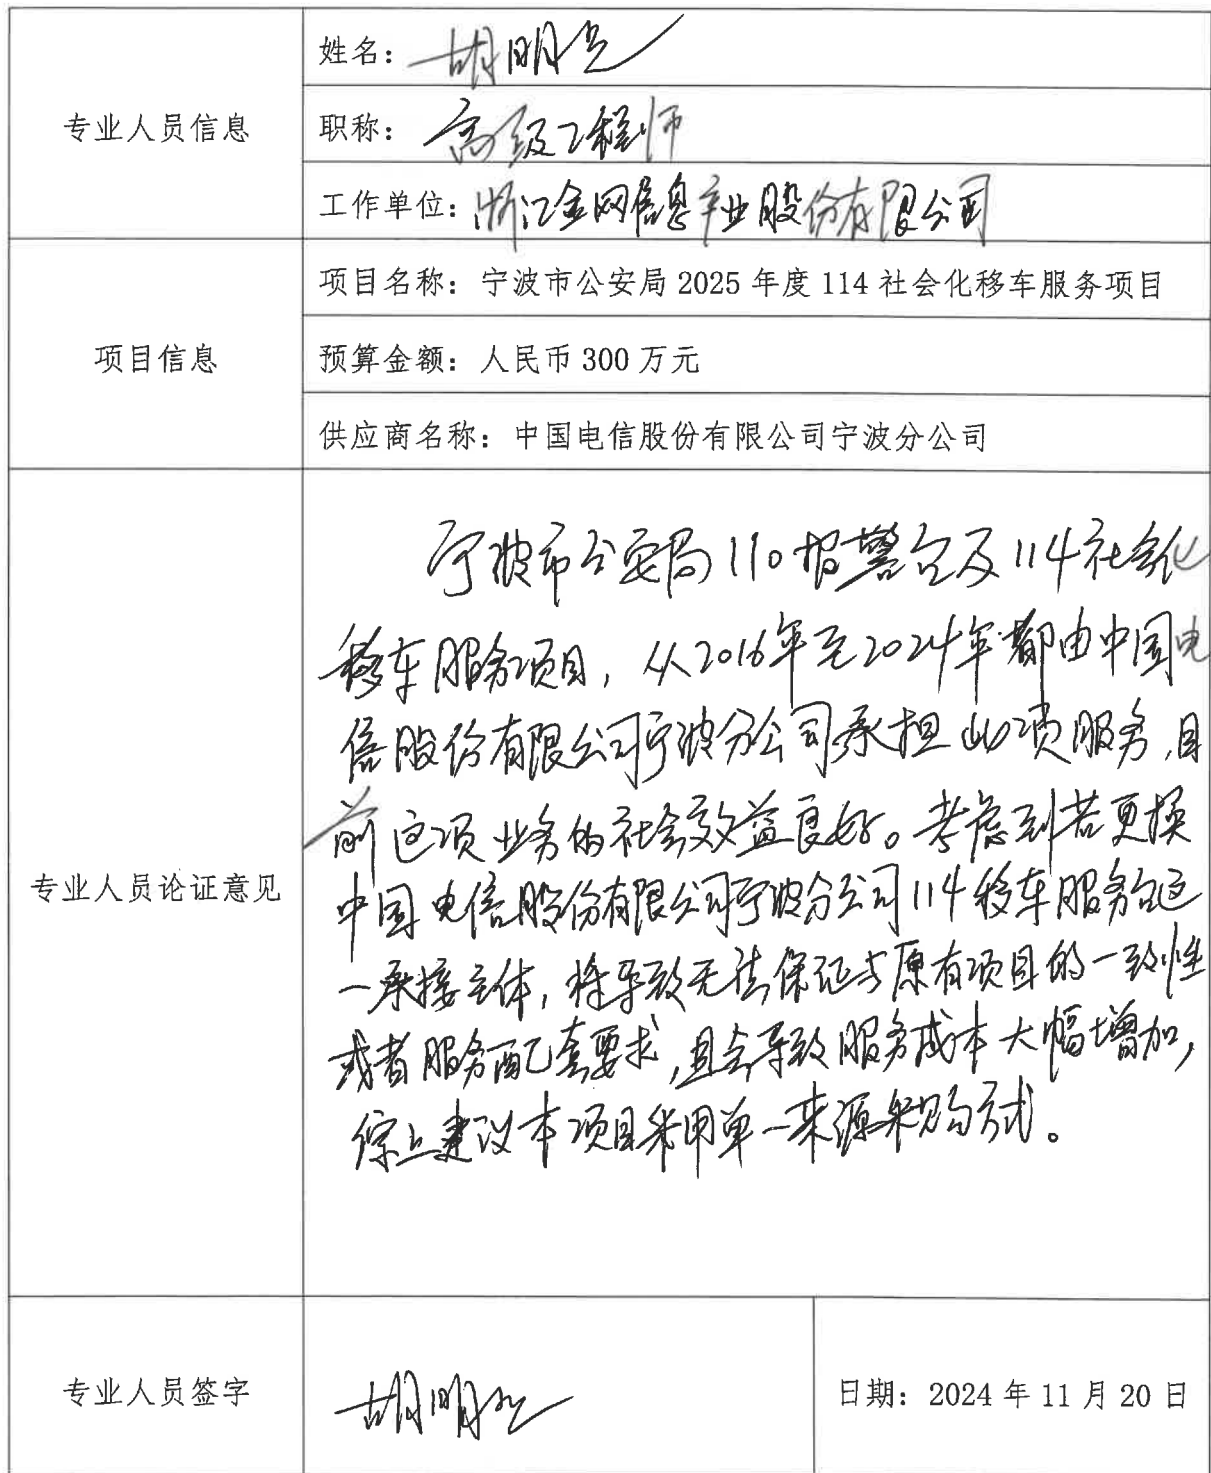 姓名：胡明
专业人员信息
职称：高级工程师
工作单位：浙江金网信息产业股份有限公司
项目名称：宁波市公安局 2025 年度 114 社会化移车服务项目
项目信息
预算金额：人民币 300 万元
供应商名称：中国电信股份有限公司宁波分公司
宁波市公安局110报警台及114社会化
移车服务项目，从2016年至2024年都由中国电
信股份有限公司宁波分公司承担此项服务，目
前这项业务的社会效益良好。考虑到若更换
专业人员论证意见
中国电信股份有限公司宁波分公司114移车服务台这
一承接主体，将导致无法保证与原有项目的一致性
或者服务配套要求，且会导致服务成本大幅增加，
综上建议本项目采用单一来源采购方式。
专业人员签字
胡明
日期：2024 年 11 月 20 日